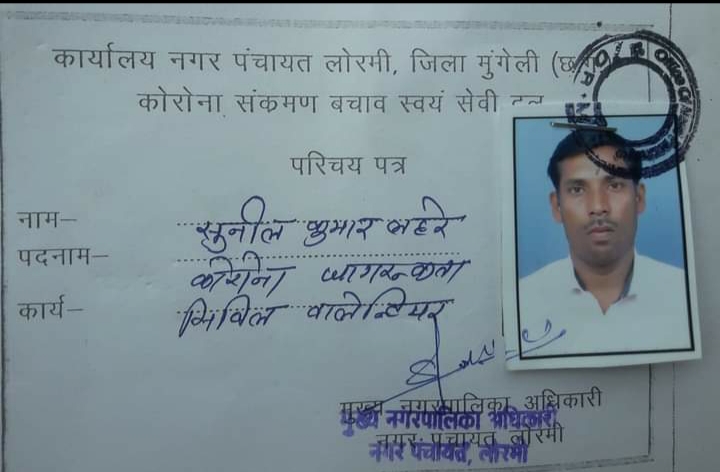 कार्यालय नगर पंचायत लोरमी, जिला मुंगेली (छ
कोरोना संकमण बचाव स्वयं सेवी दल
परिचय पत्र
नाम– सुनील कुमार लहरे
पदनाम– कोरोना जागरूकता
कार्य– सिविल वालेन्टियर
मुख्य नगरपालिका अधिकारी
मुख्य नगरपालिका अधिकारी
नगर पंचायत लोरमी
नगर पंचायत, लोरमी